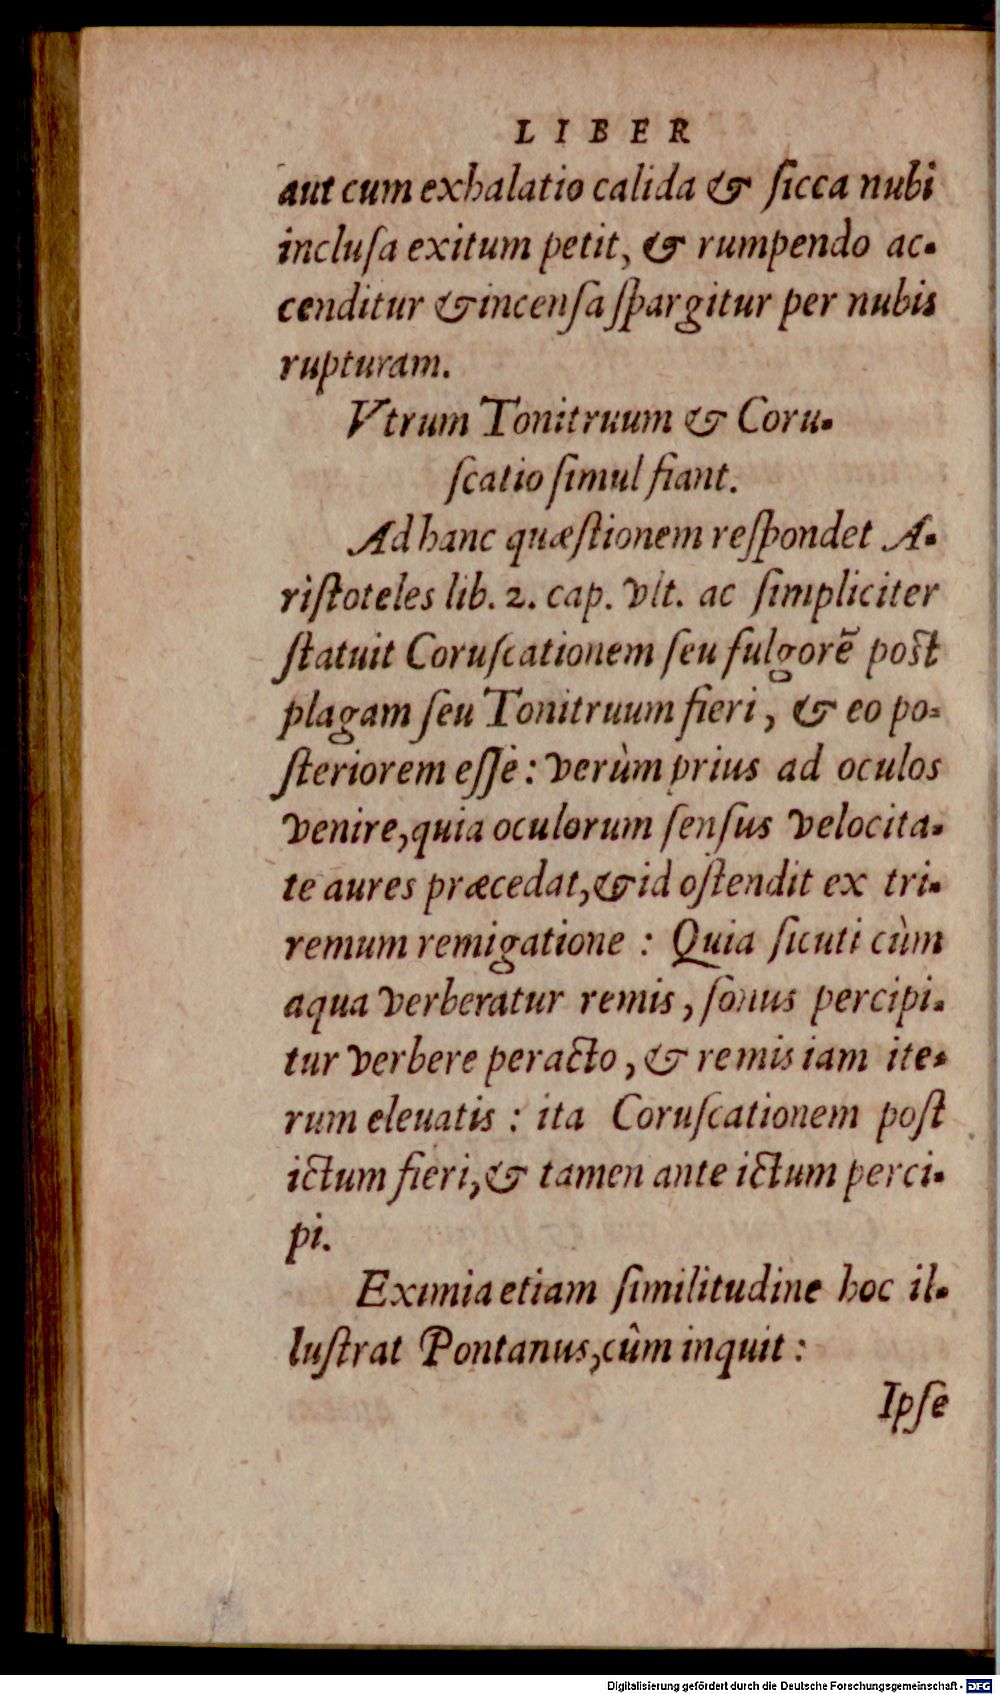 LIBER
aut cum exhalatio calida & ſicca nubi
incluſa exitum petit, & rumpendo ac-
cenditur & incenſa ſpargitur per nubis
rupturam.
Vtrum Tonitruum & Coru-
ſcatio ſimul fiant.
Ad hanc quæſtionem reſpondet A-
riſtoteles lib. 2. cap. vlt. ac ſimpliciter
ſtatuit Coruſcationem ſeu fulgorē poſt
plagam ſeu Tonitruum fieri, & eo po-
ſteriorem eſſe: verùm prius ad oculos
venire, quia oculorum ſenſus velocita-
te aures præcedat, & id oſtendit ex tri-
remum remigatione: Quia ſicuti cùm
aqua verberatur remis, ſonus percipi-
tur verbere peracto, & remis iam ite-
rum eleuatis: ita Coruſcationem poſt
ictum fieri, & tamen ante ictum perci-
pi.
Eximia etiam ſimilitudine hoc il-
luſtrat Pontanus, cûm inquit:
Ipſe
Digitalisierung gefördert durch die Deutsche Forschungsgemeinschaft - DFG